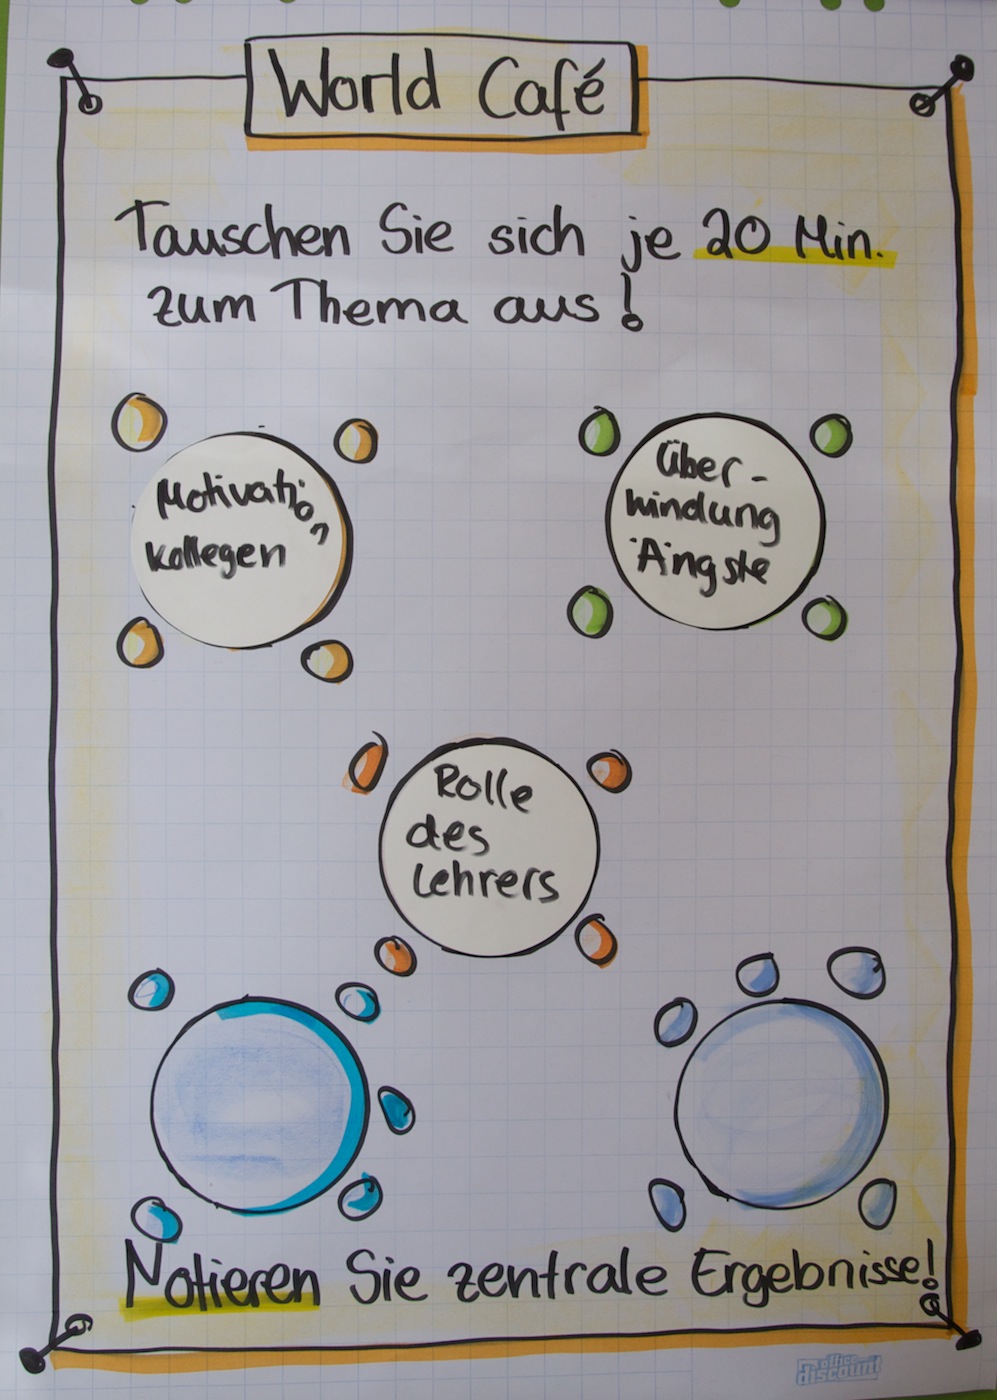 World Café
Tauschen Sie sich je 20 Min.
zum Thema aus!
Motivation
kollegen
Über-
windung
Ängste
Rolle
des
Lehrers
Notieren Sie zentrale Ergebnisse!
office
discount